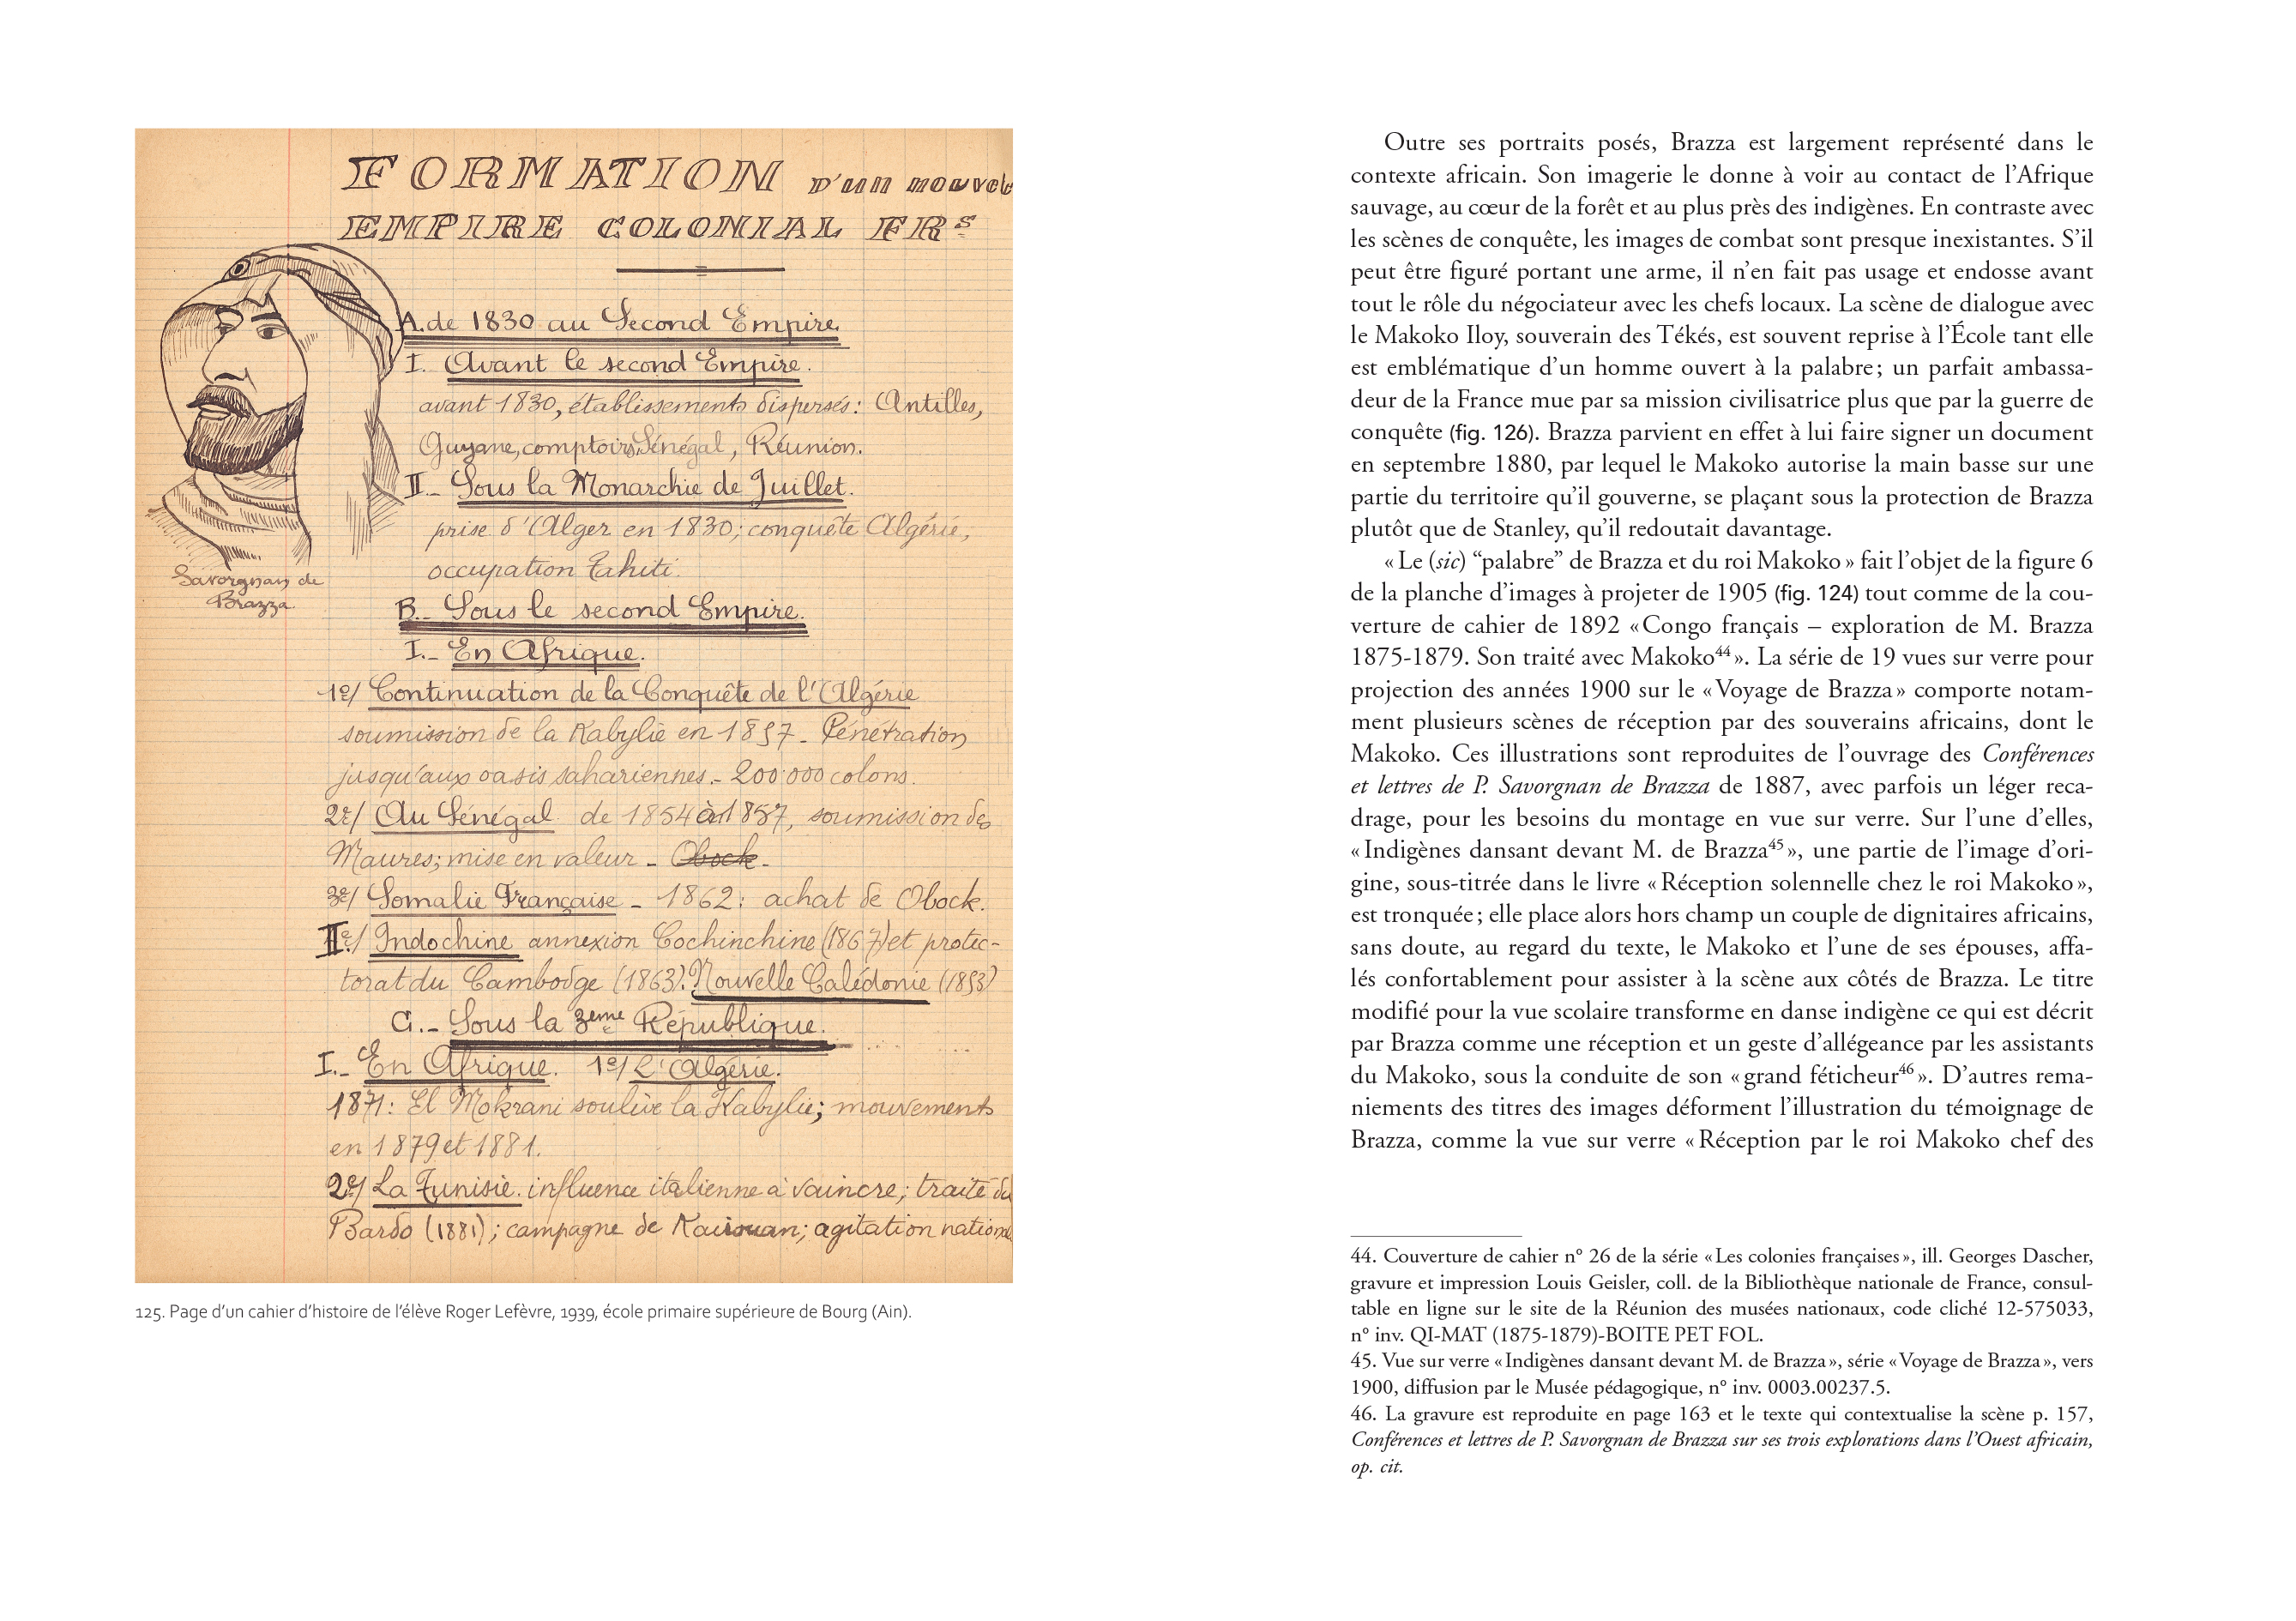 FORMATION D'un nouvel
EMPIRE COLONIAL FRS
A. de 1830 au Second Empire.
I. Avant le second Empire.
avant 1830, établissements dispersés: Antilles,
Guyane, comptoirs Sénégal, Réunion.
II.- Sous la Monarchie de Juillet.
prise d'Alger en 1830; conquête Algérie,
occupation Tahiti.
Savorgnan de
Brazza.
B.- Sous le second Empire.
I.- En Afrique.
1º/ Continuation de la Conquête de l'Algérie
soumission de la Kabylie en 1857 - Pénétration
jusqu'aux oasis sahariennes.- 200.000 colons.
2º/ Au Sénégal de 1854 à 1857, soumission des
Maures; mise en valeur - Obock -
3º/ Somalie Française - 1862: achat de Obock.
IIº/ Indochine annexion Cochinchine (1867) et protec-
torat du Cambodge (1863). Nouvelle Calédonie (1853)
C.- Sous la 3eme République.
I.- En Afrique. 1º/ L'Algérie.
1871: El Mokrani soulève la Kabylie; mouvements
en 1879 et 1881.
2º/ La Tunisie. influence italienne à vaincre; traité du
Bardo (1881); campagne de Kairouan; agitation nation
125. Page d'un cahier d'histoire de l'élève Roger Lefèvre, 1939, école primaire supérieure de Bourg (Ain).
Outre ses portraits posés, Brazza est largement représenté dans le
contexte africain. Son imagerie le donne à voir au contact de l'Afrique
sauvage, au cœur de la forêt et au plus près des indigènes. En contraste avec
les scènes de conquête, les images de combat sont presque inexistantes. S'il
peut être figuré portant une arme, il n'en fait pas usage et endosse avant
tout le rôle du négociateur avec les chefs locaux. La scène de dialogue avec
le Makoko Iloy, souverain des Tékés, est souvent reprise à l'École tant elle
est emblématique d'un homme ouvert à la palabre ; un parfait ambassa-
deur de la France mue par sa mission civilisatrice plus que par la guerre de
conquête (fig. 126). Brazza parvient en effet à lui faire signer un document
en septembre 1880, par lequel le Makoko autorise la main basse sur une
partie du territoire qu'il gouverne, se plaçant sous la protection de Brazza
plutôt que de Stanley, qu'il redoutait davantage.
« Le (sic) “palabre” de Brazza et du roi Makoko » fait l'objet de la figure 6
de la planche d'images à projeter de 1905 (fig. 124) tout comme de la cou-
verture de cahier de 1892 « Congo français – exploration de M. Brazza
1875-1879. Son traité avec Makoko44 ». La série de 19 vues sur verre pour
projection des années 1900 sur le « Voyage de Brazza » comporte notam-
ment plusieurs scènes de réception par des souverains africains, dont le
Makoko. Ces illustrations sont reproduites de l'ouvrage des Conférences
et lettres de P. Savorgnan de Brazza de 1887, avec parfois un léger reca-
drage, pour les besoins du montage en vue sur verre. Sur l'une d'elles,
« Indigènes dansant devant M. de Brazza45 », une partie de l'image d'ori-
gine, sous-titrée dans le livre « Réception solennelle chez le roi Makoko »,
est tronquée ; elle place alors hors champ un couple de dignitaires africains,
sans doute, au regard du texte, le Makoko et l'une de ses épouses, affa-
lés confortablement pour assister à la scène aux côtés de Brazza. Le titre
modifié pour la vue scolaire transforme en danse indigène ce qui est décrit
par Brazza comme une réception et un geste d'allégeance par les assistants
du Makoko, sous la conduite de son « grand féticheur46 ». D'autres rema-
niements des titres des images déforment l'illustration du témoignage de
Brazza, comme la vue sur verre « Réception par le roi Makoko chef des
44. Couverture de cahier n° 26 de la série « Les colonies françaises », ill. Georges Dascher,
gravure et impression Louis Geisler, coll. de la Bibliothèque nationale de France, consul-
table en ligne sur le site de la Réunion des musées nationaux, code cliché 12-575033,
n° inv. QI-MAT (1875-1879)-BOITE PET FOL.
45. Vue sur verre « Indigènes dansant devant M. de Brazza », série « Voyage de Brazza », vers
1900, diffusion par le Musée pédagogique, n° inv. 0003.00237.5.
46. La gravure est reproduite en page 163 et le texte qui contextualise la scène p. 157,
Conférences et lettres de P. Savorgnan de Brazza sur ses trois explorations dans l'Ouest africain,
op. cit.